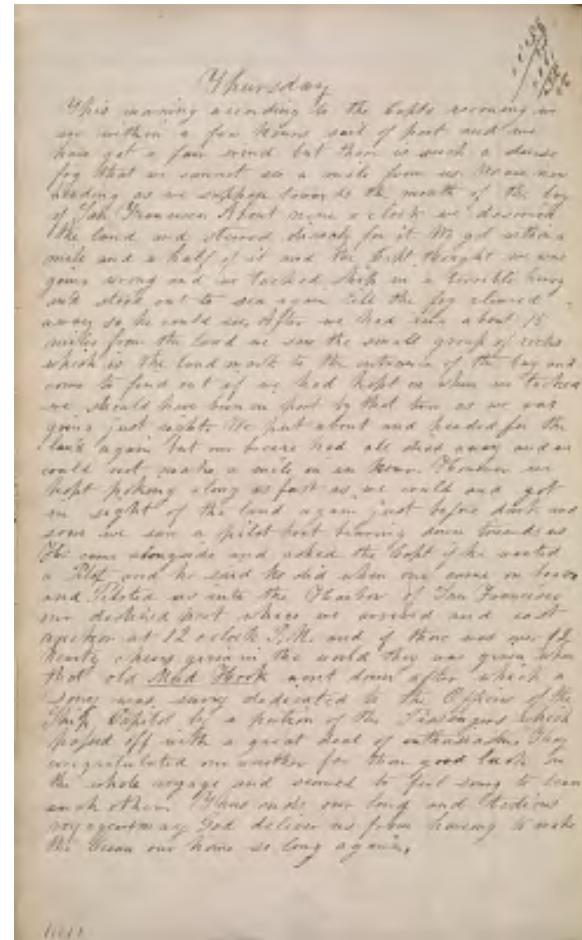 Thursday
This morning according to the Capts reconing we
are within a few hours sail of port and we
have got a fair wind but there is such a dense
fog that we cannot see a mile from us. We are now
heading as we suppose towards the mouth of the bay
of San Francisco About nine o clock we discovered
the land and steered directly for it We got within a
mile and a half of it and the Capt thought we was
going wrong and we tacked ship in a terrible hurry
and stood out to sea again till the fog cleared
away so he could see, After we had run about 15
miles from the land we saw the small group of rocks
which is the land mark to the entrance of the bay and
come to find out if we had kept on when we tacked
we should have been in port by that time as we was
going just right. We put about and headed for the
land again but our breeze had all died away and we
could not make a mile in an hour. However we
kept poking along as fast as we could and got
in sight of the land again just before dark and
soon we saw a pilot boat bearing down towards us
He came alongside and asked the Capt if he wanted
a Pilot and he said he did when one came on board
and Piloted us into the Harbor of San Francisco
our destined port where we arrived and cast
anchor at 12 oclock P.M. and if there was ever 12
hearty cheers given in the world they was given when
that old Mud Hook went down after which a
song was sung dedicated to the Officers of the
Ship Capitol by a portion of the Passengers which
passed off with a great deal of enthusiasm. They
congratulated one another for their good luck on
the whole voyage and seemed to feel sorry to leave
each other. Thus ends our long and tedious
voyage may God deliver us from having to make
the Ocean our home so long again.